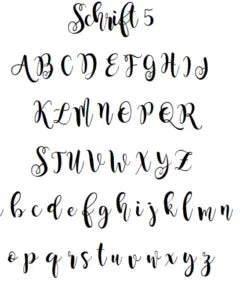 Schrift 5
A B C D E F G H I J
K L M N O P Q R
S T U V W X Y Z
b c d e f g h i j k l m n
o p q r s t u v w x y z